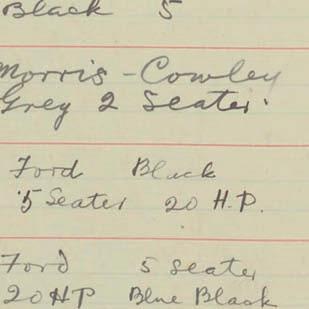 Black 5
Morris-Cowley
Grey 2 Seater.
Ford Black
5 Seater 20 H.P.
Ford 5 Seater
20 HP Blue Black